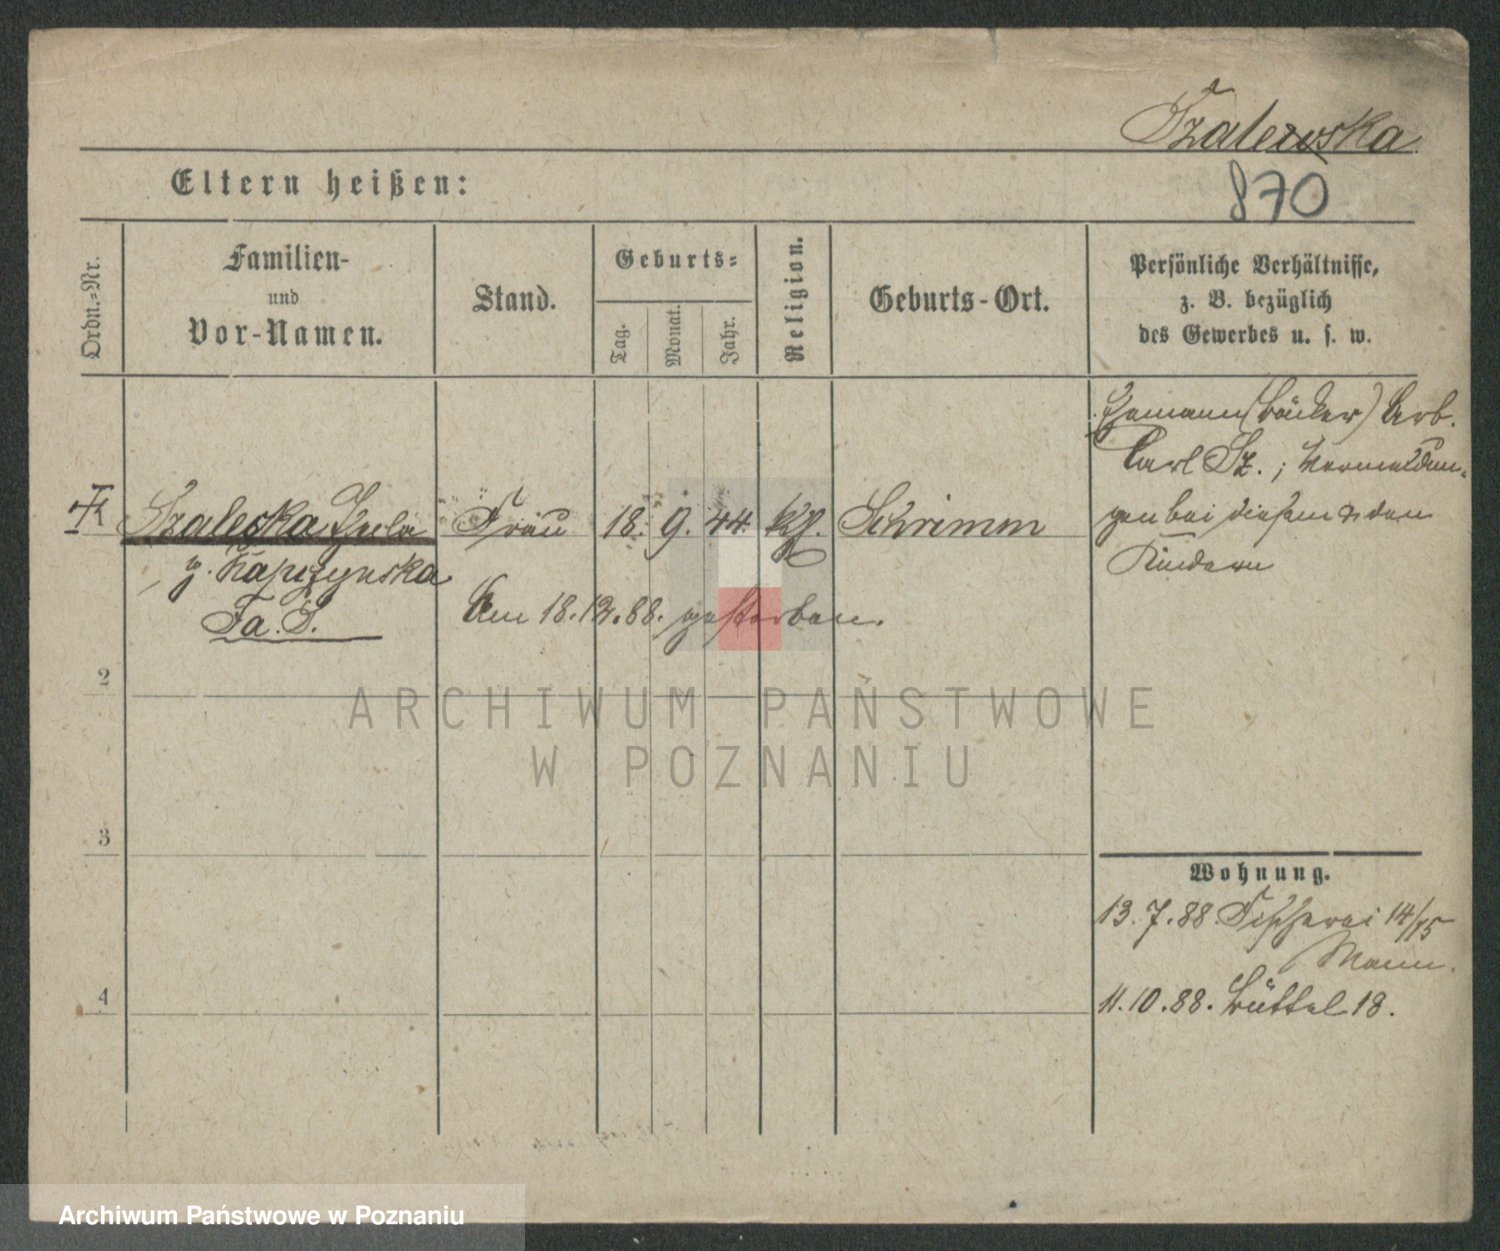 Szalewska
870
Eltern heißen:
Ordn.=Nr.
Familien-
und
Vor-Namen.
Stand.
Geburts=
Tag.
Monat.
Jahr.
Religion.
Geburts-Ort.
Persönliche Verhältnisse,
z. B. bezüglich
des Gewerbes u. s. w.
Ehemann (Bäcker) Arb.
Carl Sz.; Vermeldun-
gen bei diesem & den
Kindern
Szaleska Jula Frau 18. 9. 44. kth. Schrimm
g. Kapczynska
Fa. S.
Am 18.12.88. gestorben.
2
3
4
Wohnung.
13.7.88 Fischerei 14/15
Mann.
11.10.88. Büttel 18.
ARCHIWUM PAŃSTWOWE
W POZNANIU
Archiwum Państwowe w Poznaniu